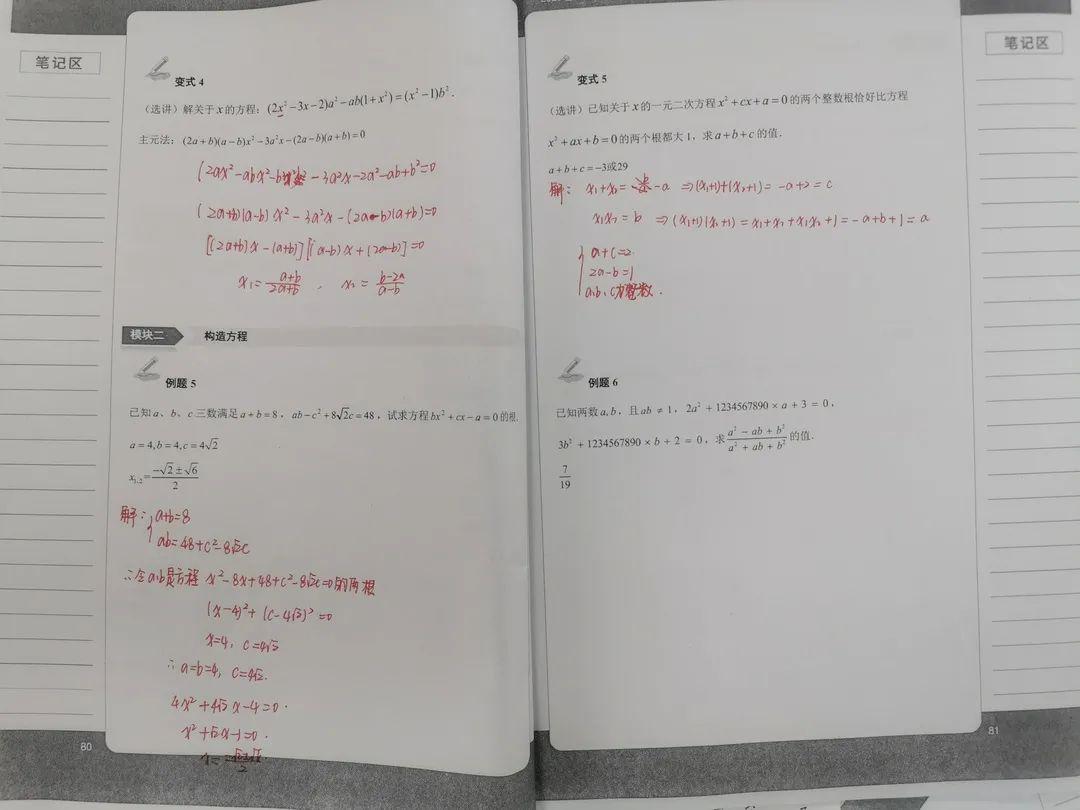 笔记区
变式 4
（选讲）解关于 x 的方程：(2x²−3x−2)a²−ab(1+x²)=(x²−1)b².
主元法：(2a+b)(a−b)x²−3a²x−(2a−b)(a+b)=0
(2a+b)(a−b)x²−3a²x−(2a−b)(a+b)=0
[(2a+b)x−(a+b)][(a−b)x+(2a−b)]=0
x₁=\frac{a+b}{2a+b}，x₂=\frac{b−2a}{a−b}
模块二 构造方程
例题 5
已知 a、b、c 三数满足 a+b=8，ab−c²+8√2c=48，试求方程 bx²+cx−a=0 的根.
a=4,b=4,c=4√2
x₁,₂=\frac{−√2±√6}{2}
解：a+b=8
ab=48+c²−8√2c
∴全a,b是方程 x²−8x+48+c²−8√2c=0的两根
(x−4)²+(c−4√2)²=0
x=4，c=4√2
∴a=b=4，c=4√2.
4x²+4√2x−4=0.
x²+√2x−1=0.
80
笔记区
变式 5
（选讲）已知关于 x 的一元二次方程 x²+cx+a=0 的两个整数根恰好比方程
x²+ax+b=0 的两个根都大 1，求 a+b+c 的值.
a+b+c=−3或29
解：x₁+x₂=−a ⇒(x₁+1)+(x₂+1)=−a+2=c
x₁x₂=b ⇒(x₁+1)(x₂+1)=x₁+x₂+x₁x₂+1=−a+b+1=a
a+c=2.
2a−b=1
a,b、c为整数.
例题 6
已知两数 a,b，且 ab ≠ 1，2a² + 1234567890 × a + 3 = 0，
3b² + 1234567890 × b + 2 = 0，求\frac{a² − ab + b²}{a² + ab + b²}的值.
\frac{7}{19}
81